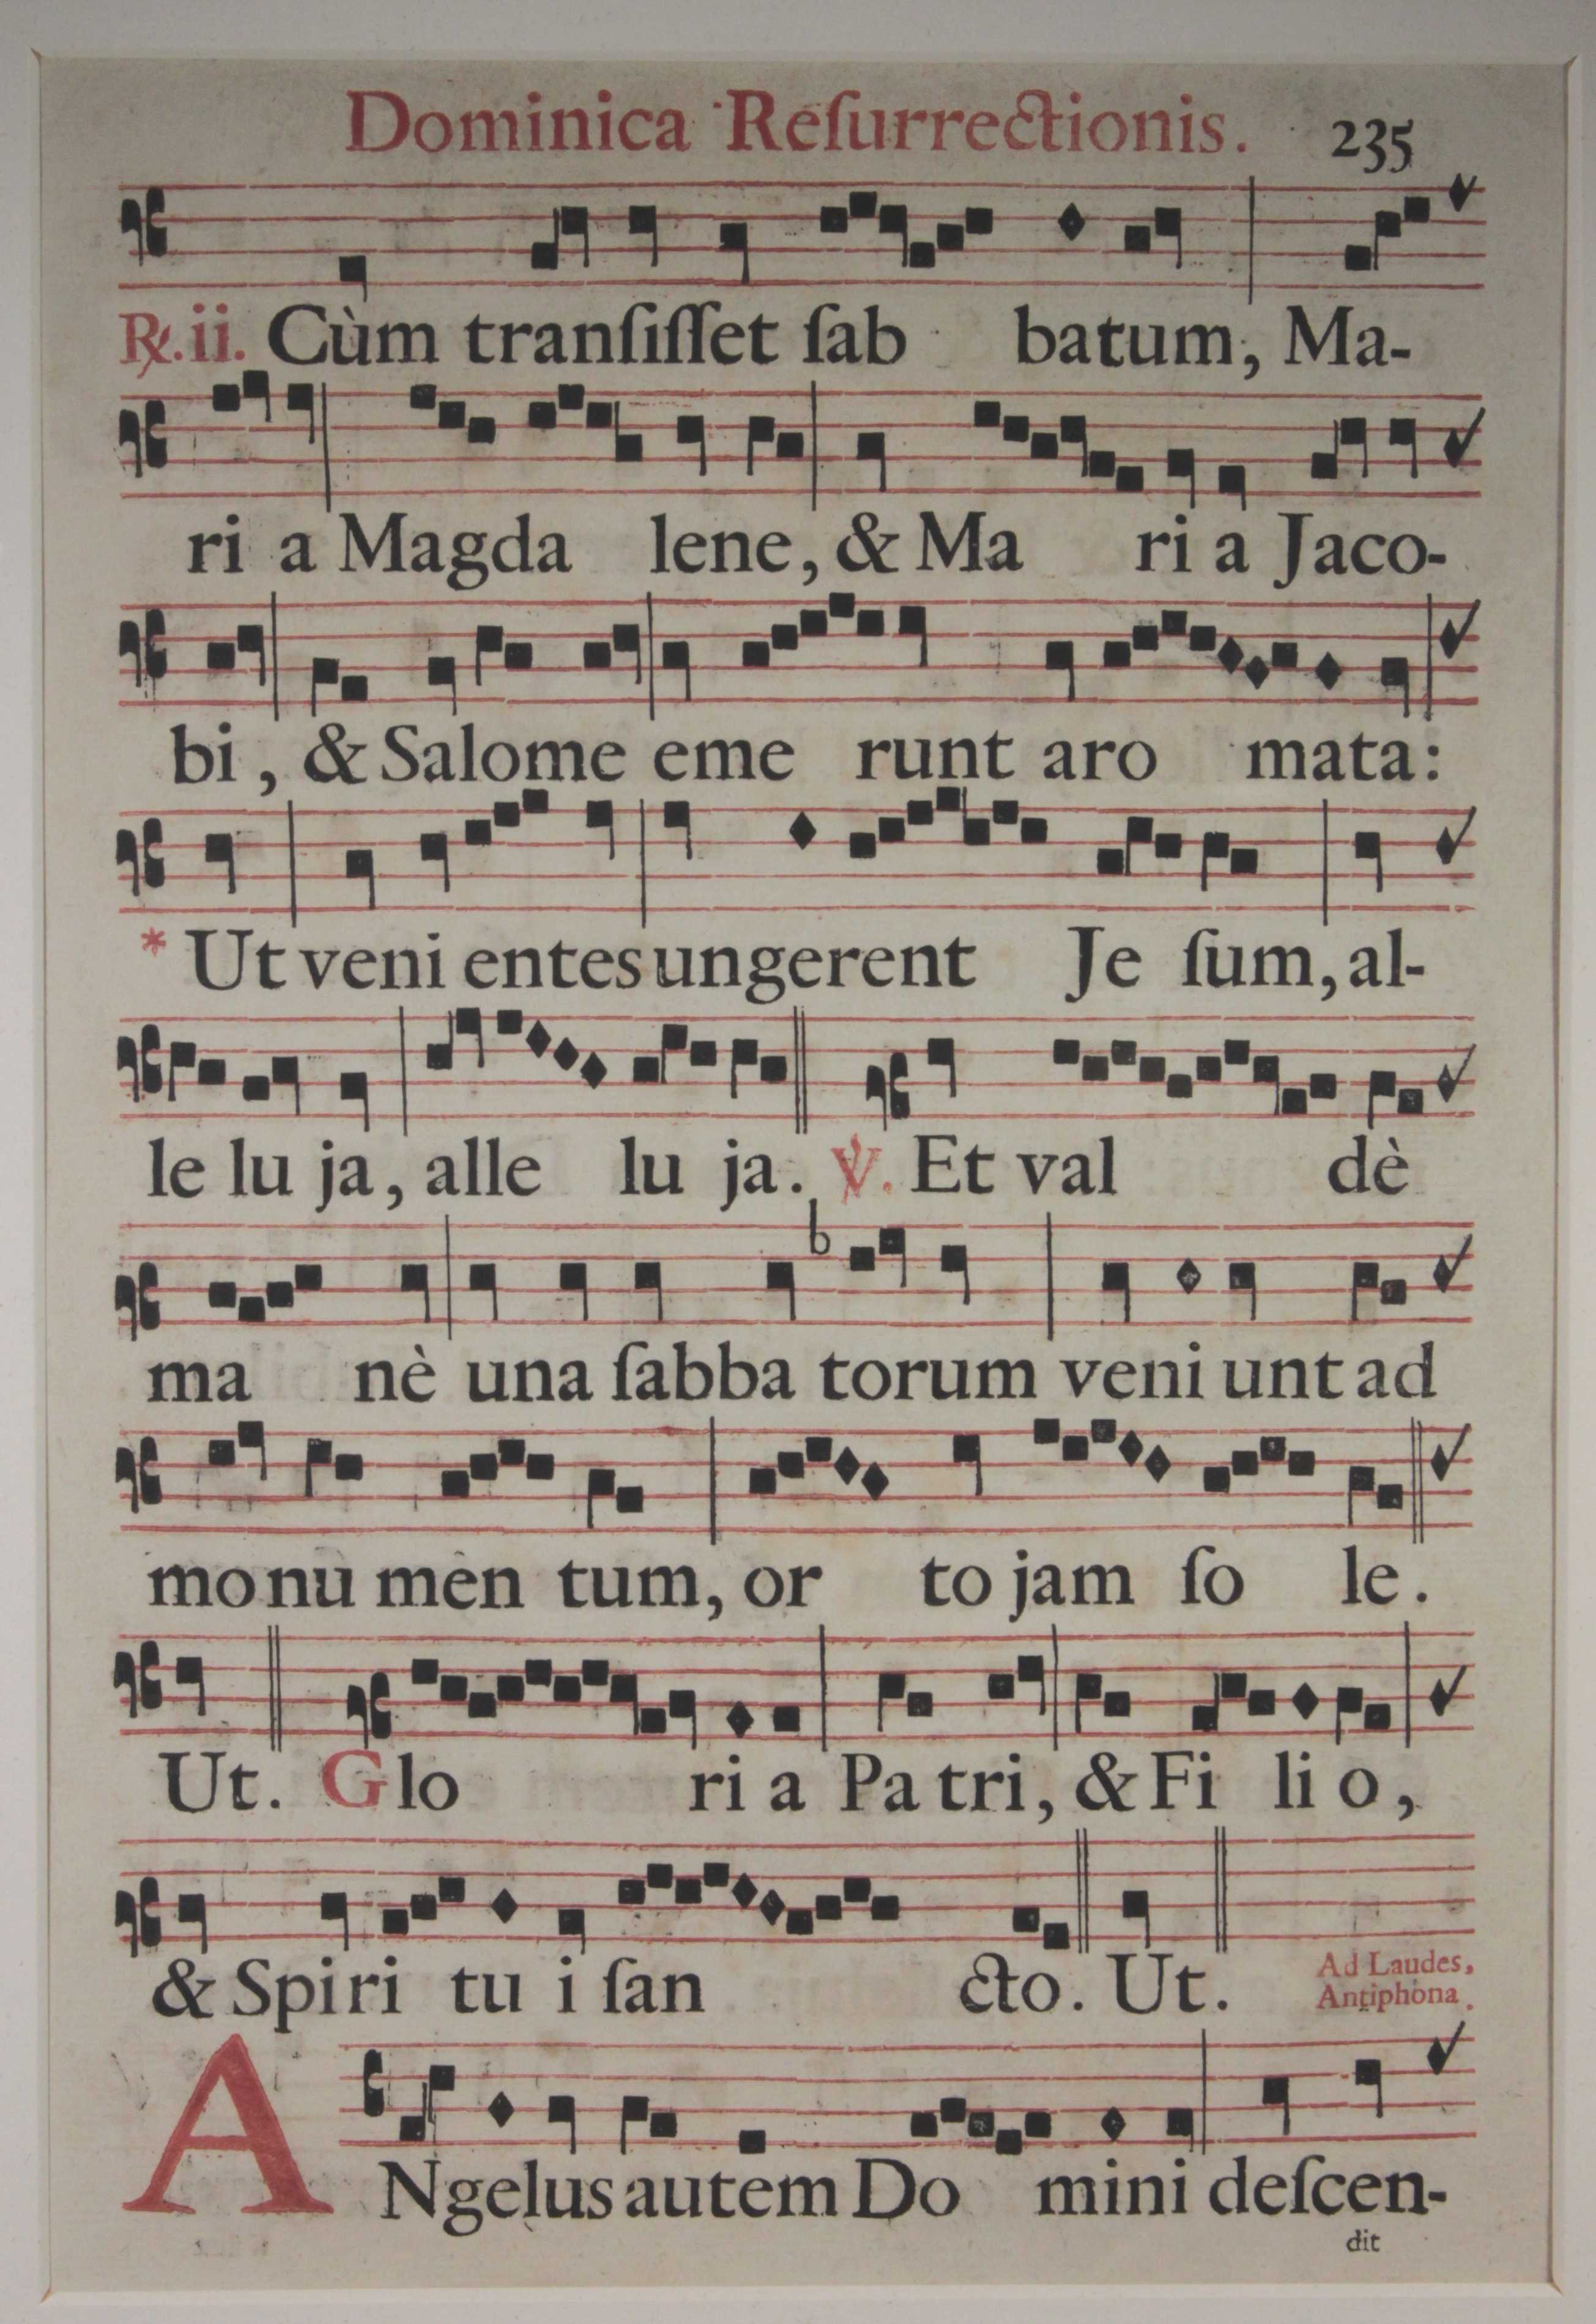 Dominica Reſurrectionis. 235
℟.ii. Cùm tranſiſſet ſab batum, Ma-
ri a Magda lene, & Ma ri a Jaco-
bi, & Salome eme runt aro mata:
* Ut veni entes ungerent Je ſum, al-
le lu ja, alle lu ja. ℣. Et val dè
ma nè una ſabba torum veni unt ad
mo nu men tum, or to jam ſo le.
Ut. Glo ri a Pa tri, & Fi li o,
& Spi ri tu i ſan cto. Ut. Ad Laudes,
Antiphona.
ANgelus autem Do mini deſcen-
dit